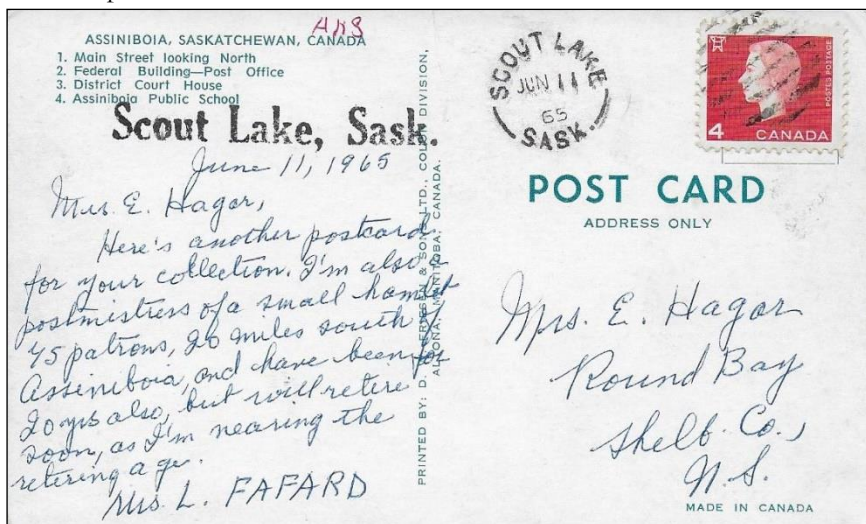 ANS
ASSINIBOIA, SASKATCHEWAN, CANADA
1. Main Street looking North
2. Federal Building—Post Office
3. District Court House
4. Assiniboia Public School
Scout Lake, Sask.
June 11, 1965
Mrs. E. Hagar,
Here's another postcard
for your collection. I'm also a
postmistress of a small hamlet
45 patrons, 20 miles south of
Assiniboia, and have been for
20 yrs also, but will retire
soon, as I'm nearing the
retiring age.
Mrs. L. FAFARD
PRINTED BY: D. & SONS LTD., DIVISION,
ALTONA, MANITOBA, CANADA.
SCOUT LAKE
JUN 11
65
SASK.
POSTES POSTAGE
4 CANADA
POST CARD
ADDRESS ONLY
Mrs. E. Hagar
Round Bay
Shelb. Co.,
N.S.
MADE IN CANADA